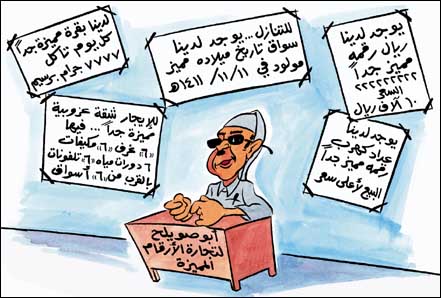 يوجد لدينا
ريال رقمه
مميز جداً
٢٢٢٢٢٢٢٢٢
السعر
١٠ آلاف ريال
للتنازل... يوجد لدينا
سواق تاريخ ميلاده مميز
مولود في ١١/ ١١/ ١٤١١هـ
لدينا بقرة مميزة جداً
كل يوم تاكل
٧٧٧٧ جرام برسيم
يوجد لدينا
عداد كهرب
رقمه مميز جداً
البيع لأعلى سعر
للإيجار شقة عزوبية
مميزة جداً... فيها
«٦» غرف «٦» مكيفات
٦ دورات مياه «٦» تلفونات
بالقرب من «٦» أسواق
ابو صويلح
لتجارة الأرقام
المميزة